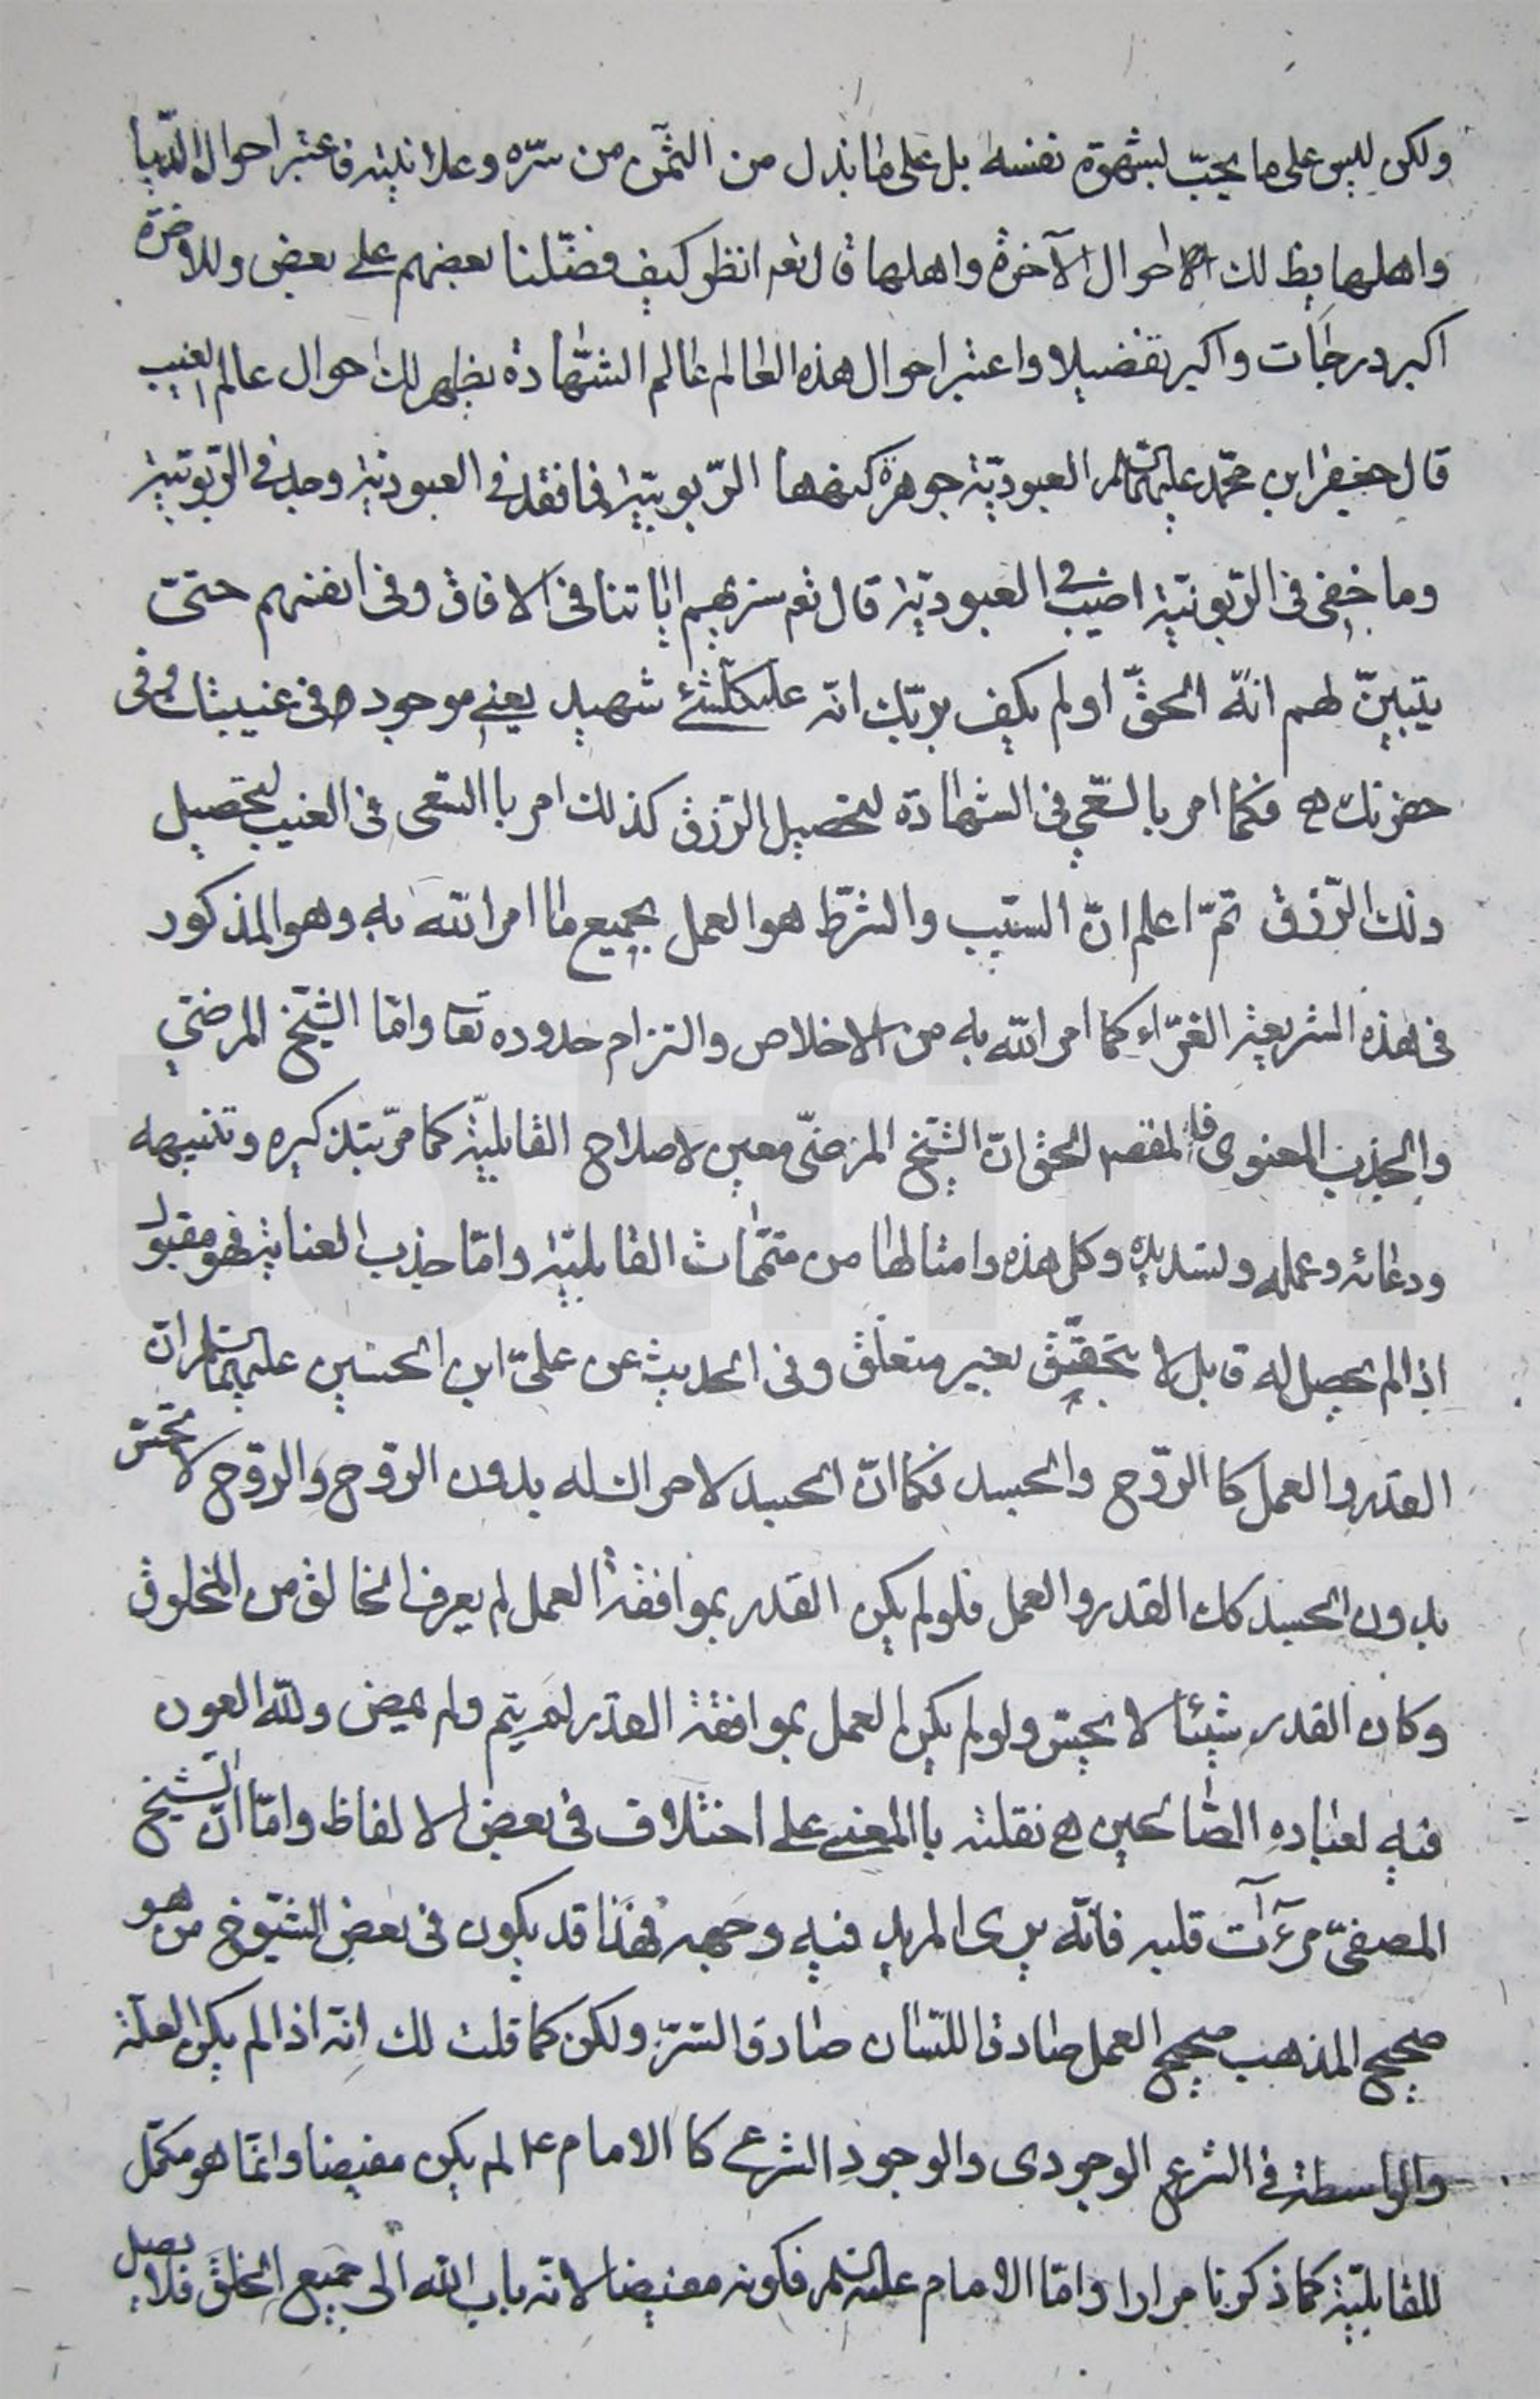 ولكن ليس على ما يحبّ لشهوة نفسه بل على ما بذل من الثمن من سرّه وعلانيته فاعتبر احوال الدّنيا
واهلها يظ لك الاحوال الآخرة واهلها قال تعم انظر كيف فضّلنا بعضهم على بعض وللاخرة
اكبر درجات واكبر تفضيلا واعتبر احوال هذه العالم عالم الشّهادة يظهر لك احوال عالم الغيب
قال جعفر ابن محمّد عليهما السلام العبوديّة جوهرة كنهها الرّبوبيّة فما فقد في العبوديّة وجد في الرّبوبيّة
وما خفى فى الرّبوبيّة اصيب فى العبوديّة قال تعم سنريهم اياتنا فى الافاق وفى انفسهم حتىّ
يتبيّن لهم انّه الحقّ اولم يكف بربّك انّه على كلّشئ شهيد يعنى موجود فى غيبتك وفى
حضرتك ه فكما امر بالسّعى فى الشهادة لتحصيل الرّزق كذلك امر باالسّعى فى الغيب لتحصيل
ذلك الرّزق ثمّ اعلم انّ السّبب والشّرط هو العمل بجميع ما امر الله به وهو المذكور
فى هذه الشريعة الغرّاء كما امر الله به من الاخلاص والتزام حدوده تعا وامّا الشيخ المرضىّ
والجذب المعنوى فا لحق انّ الشّيخ المرضىّ معين لاصلاح القابليّة كما مرّ بتذكيره وتنبيهه
ودعائه وعمله وتسديده وكل هذه وامثالها من متمّمات القابليّة وامّا جذب العناية فهو مقبول
اذا لم يحصل له قابل لا يتحقّق بغير متعلّق وفى الحديث عن علىّ ابن الحسين عليهما السلام انّ
القدر والعمل كا الرّوح والجسد فكما انّ الجسد لا حراك له بدون الروح والروّح لا تحسّ
بدون الجسد كك القدر والعمل فلو لم يكن القدر بموافقة العمل لم يعرف الخالق من المخلوق
وكان القدر شيئا لا يحسّ ولو لم يكن العمل بموافقة القدر لم يتم ولم يمض ولله العون
فيه لعباده الصّالحين ه نقلته باالمعنى على اختلاف فى بعض الالفاظ وامّا انّ الشّيخ
المصفىّ مرءآت قلبه فانّه يرى المريد فيه وجهه فهذا قد يكون فى بعض الشّيوخ من هو
صحيح المذهب صحيح العمل صادق اللّسان صادق السّرّ ولكن كما قلت لك انّه اذا لم يكن العلّة
والواسطة فى الشرع الوجودى والوجود الشرعى كا الامام ع لم يكن مفيضا وانّما هو مكمّل
للقابليّة كما ذكرنا مرارا وامّا الامام عليه السلم فكونه مفيضا لانّه باب الله الى جميع الخلق فلا يصل